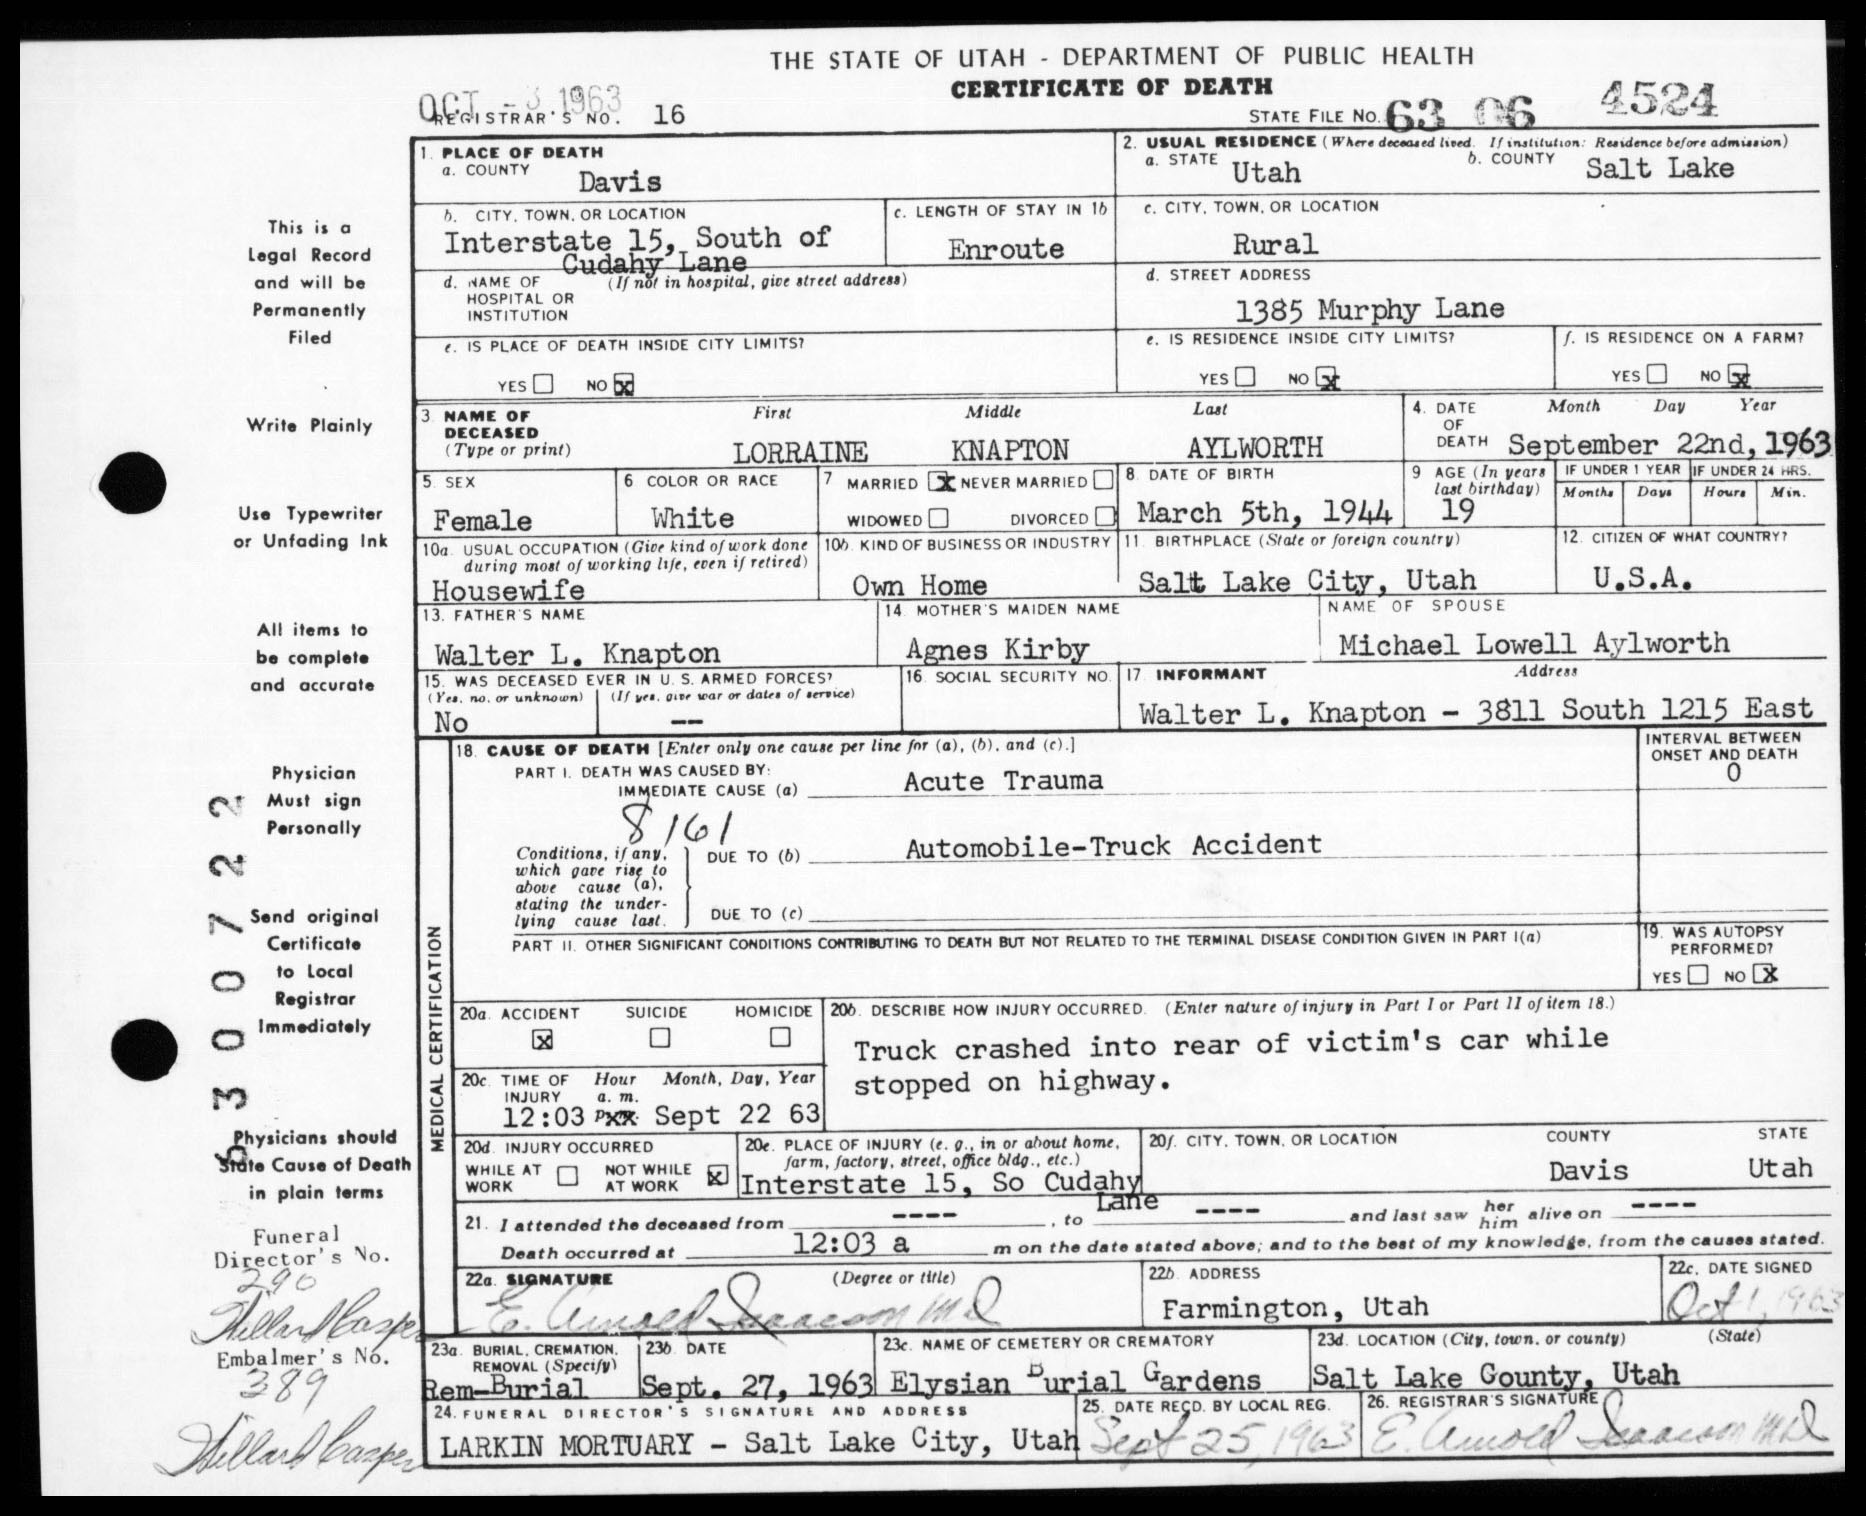 THE STATE OF UTAH - DEPARTMENT OF PUBLIC HEALTH
CERTIFICATE OF DEATH
OCT -3 1963
REGISTRAR'S NO. 16
STATE FILE NO. 63 06 4524
1. PLACE OF DEATH
a. COUNTY Davis
2. USUAL RESIDENCE (Where deceased lived. If institution: Residence before admission)
a. STATE Utah b. COUNTY Salt Lake
b. CITY, TOWN, OR LOCATION
Interstate 15, South of
Cudahy Lane
c. LENGTH OF STAY IN 1b
Enroute
c. CITY, TOWN, OR LOCATION
Rural
d. NAME OF (If not in hospital, give street address)
HOSPITAL OR
INSTITUTION
d. STREET ADDRESS
1385 Murphy Lane
e. IS PLACE OF DEATH INSIDE CITY LIMITS?
YES NO X
e. IS RESIDENCE INSIDE CITY LIMITS?
YES NO X
f. IS RESIDENCE ON A FARM?
YES NO X
3. NAME OF
DECEASED
(Type or print)
First Middle Last
LORRAINE KNAPTON AYLWORTH
4. DATE Month Day Year
OF
DEATH September 22nd, 1963
5. SEX
Female
6 COLOR OR RACE
White
7 MARRIED X NEVER MARRIED
WIDOWED DIVORCED
8. DATE OF BIRTH
March 5th, 1944
9 AGE (In years
last birthday)
19
IF UNDER 1 YEAR IF UNDER 24 HRS.
Months Days Hours Min.
10a. USUAL OCCUPATION (Give kind of work done
during most of working life, even if retired)
Housewife
10b. KIND OF BUSINESS OR INDUSTRY
Own Home
11. BIRTHPLACE (State or foreign country)
Salt Lake City, Utah
12. CITIZEN OF WHAT COUNTRY?
U.S.A.
13. FATHER'S NAME
Walter L. Knapton
14. MOTHER'S MAIDEN NAME
Agnes Kirby
NAME OF SPOUSE
Michael Lowell Aylworth
15. WAS DECEASED EVER IN U. S. ARMED FORCES?
(Yes, no, or unknown) (If yes, give war or dates of service)
No --
16. SOCIAL SECURITY NO.
17. INFORMANT Address
Walter L. Knapton - 3811 South 1215 East
MEDICAL CERTIFICATION
18. CAUSE OF DEATH [Enter only one cause per line for (a), (b), and (c).]
INTERVAL BETWEEN
ONSET AND DEATH
0
PART I. DEATH WAS CAUSED BY:
IMMEDIATE CAUSE (a) Acute Trauma
8161
Conditions, if any,
which gave rise to
above cause (a),
stating the under-
lying cause last.
DUE TO (b) Automobile-Truck Accident
DUE TO (c)
PART II. OTHER SIGNIFICANT CONDITIONS CONTRIBUTING TO DEATH BUT NOT RELATED TO THE TERMINAL DISEASE CONDITION GIVEN IN PART I(a)
19. WAS AUTOPSY
PERFORMED?
YES NO X
20a. ACCIDENT SUICIDE HOMICIDE
X
20b. DESCRIBE HOW INJURY OCCURRED. (Enter nature of injury in Part I or Part II of item 18.)
Truck crashed into rear of victim's car while
stopped on highway.
20c. TIME OF Hour Month, Day, Year
INJURY a. m.
12:03 pxx Sept 22 63
20d. INJURY OCCURRED
WHILE AT NOT WHILE X
WORK AT WORK
20e. PLACE OF INJURY (e. g., in or about home,
farm, factory, street, office bldg., etc.)
Interstate 15, So Cudahy
Lane
20f. CITY, TOWN, OR LOCATION COUNTY STATE
Davis Utah
21. I attended the deceased from ----, to ---- and last saw her him alive on ----
Death occurred at 12:03 a m on the date stated above; and to the best of my knowledge, from the causes stated.
22a. SIGNATURE (Degree or title)
E. Arnold Isaacson MD
22b. ADDRESS
Farmington, Utah
22c. DATE SIGNED
Oct 1, 1963
23a. BURIAL, CREMATION,
REMOVAL (Specify)
Rem-Burial
23b. DATE
Sept. 27, 1963
23c. NAME OF CEMETERY OR CREMATORY
Elysian Burial Gardens
23d. LOCATION (City, town, or county) (State)
Salt Lake County, Utah
24. FUNERAL DIRECTOR'S SIGNATURE AND ADDRESS
LARKIN MORTUARY - Salt Lake City, Utah
25. DATE RECD. BY LOCAL REG.
Sept 25, 1963
26. REGISTRAR'S SIGNATURE
E. Arnold Isaacson MD
This is a
Legal Record
and will be
Permanently
Filed
Write Plainly
Use Typewriter
or Unfading Ink
All items to
be complete
and accurate
Physician
Must sign
Personally
Send original
Certificate
to Local
Registrar
Immediately
Physicians should
State Cause of Death
in plain terms
6300722
Funeral
Director's No.
290
Willard Casper
Embalmer's No.
389
Willard Casper